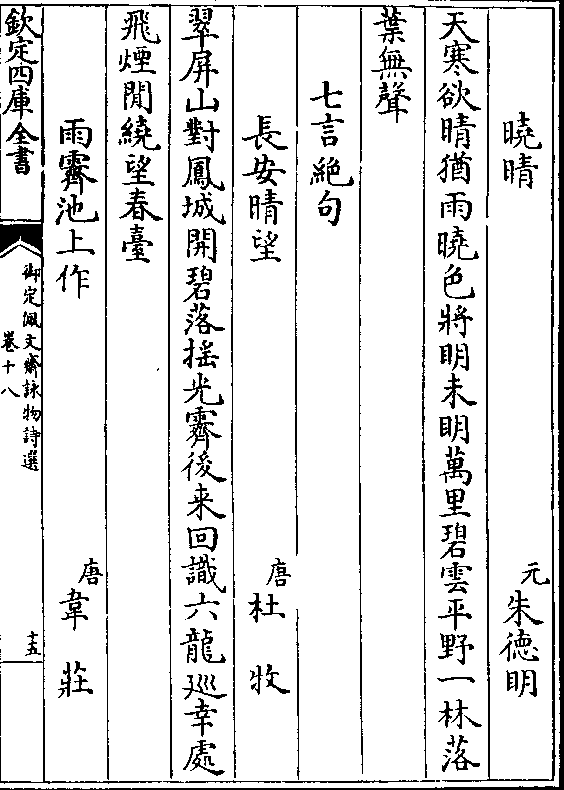 曉晴　元朱德明
天寒欲晴猶雨曉色將明未明萬里碧雲平野一林落
葉無聲
七言絕句
長安晴望　唐杜牧
翠屏山對鳳城開碧落摇光霽後来回識六龍巡幸處
飛煙閒繞望春臺
雨霽池上作　唐韋莊
欽定四庫全書
御定佩文齋詠物詩選
卷十八
十五